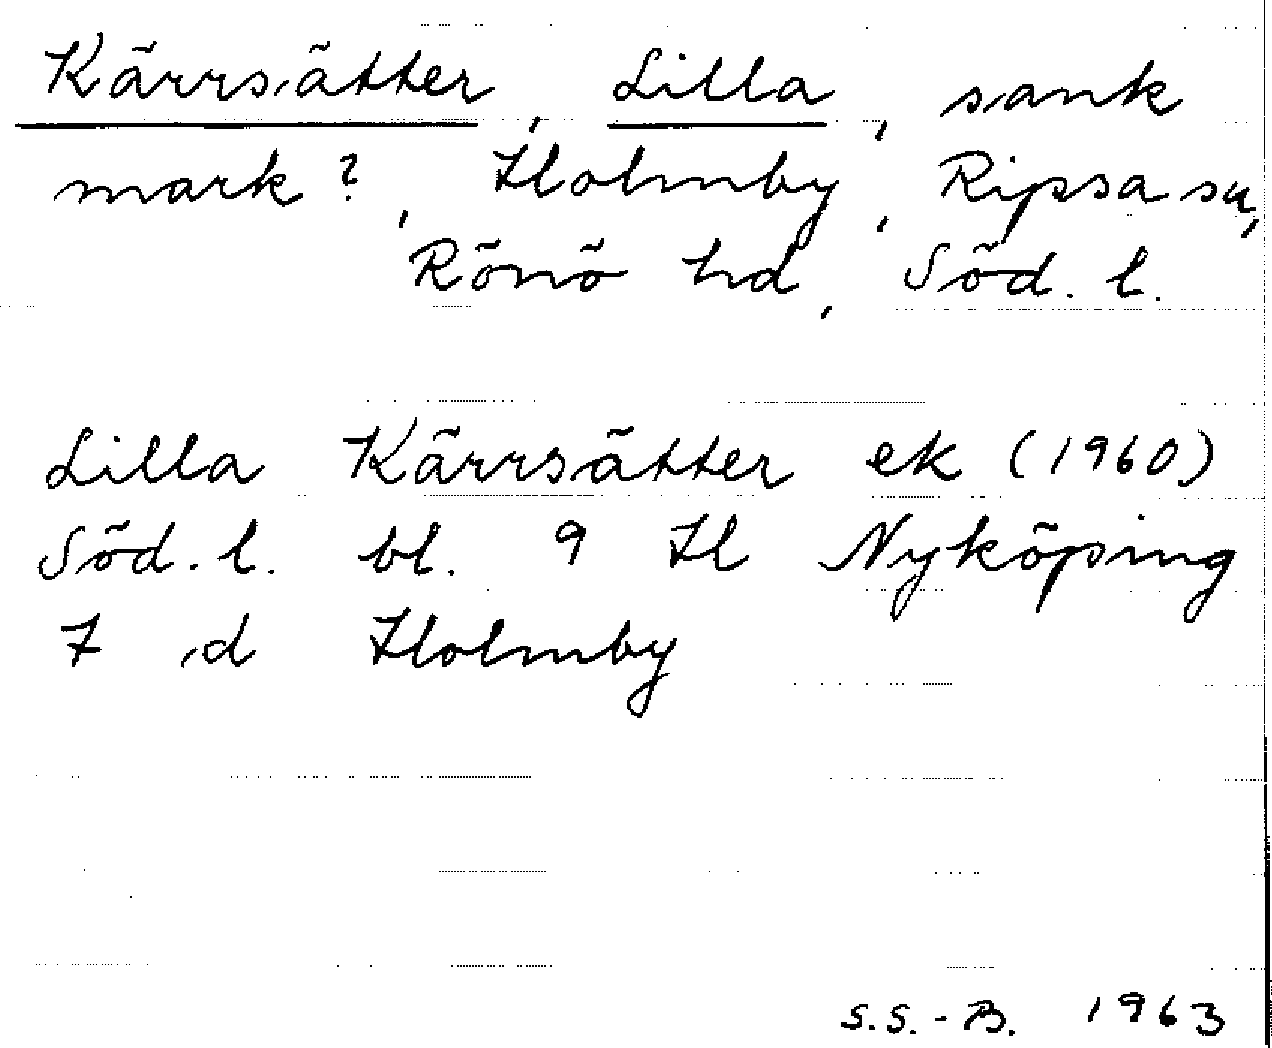 Kärrsätter, Lilla, sank
mark?, Holmby, Ripsa sn,
Rönö hd, Söd. l.
Lilla Kärrsätter ek (1960)
Söd. l. bl. 9 H Nyköping
7 d Holmby
S.S.-B. 1963